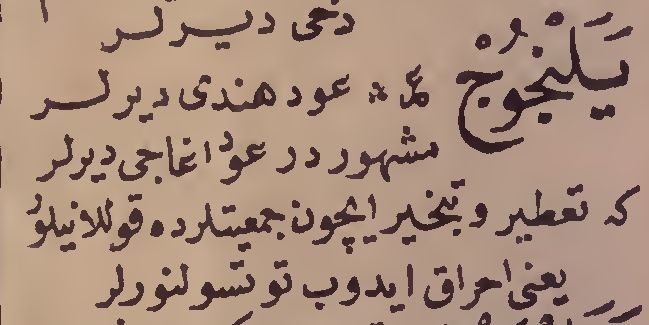 دخی دیرلر
یَلَنْجُوْجْ عود هندی دیرلر
مشهور در عود اغاجی دیرلر
که تعطیر و تبخیر ایچون جمعیتلرده قوللانیلور
یعنی احراق ایدوب توتسولنورلر